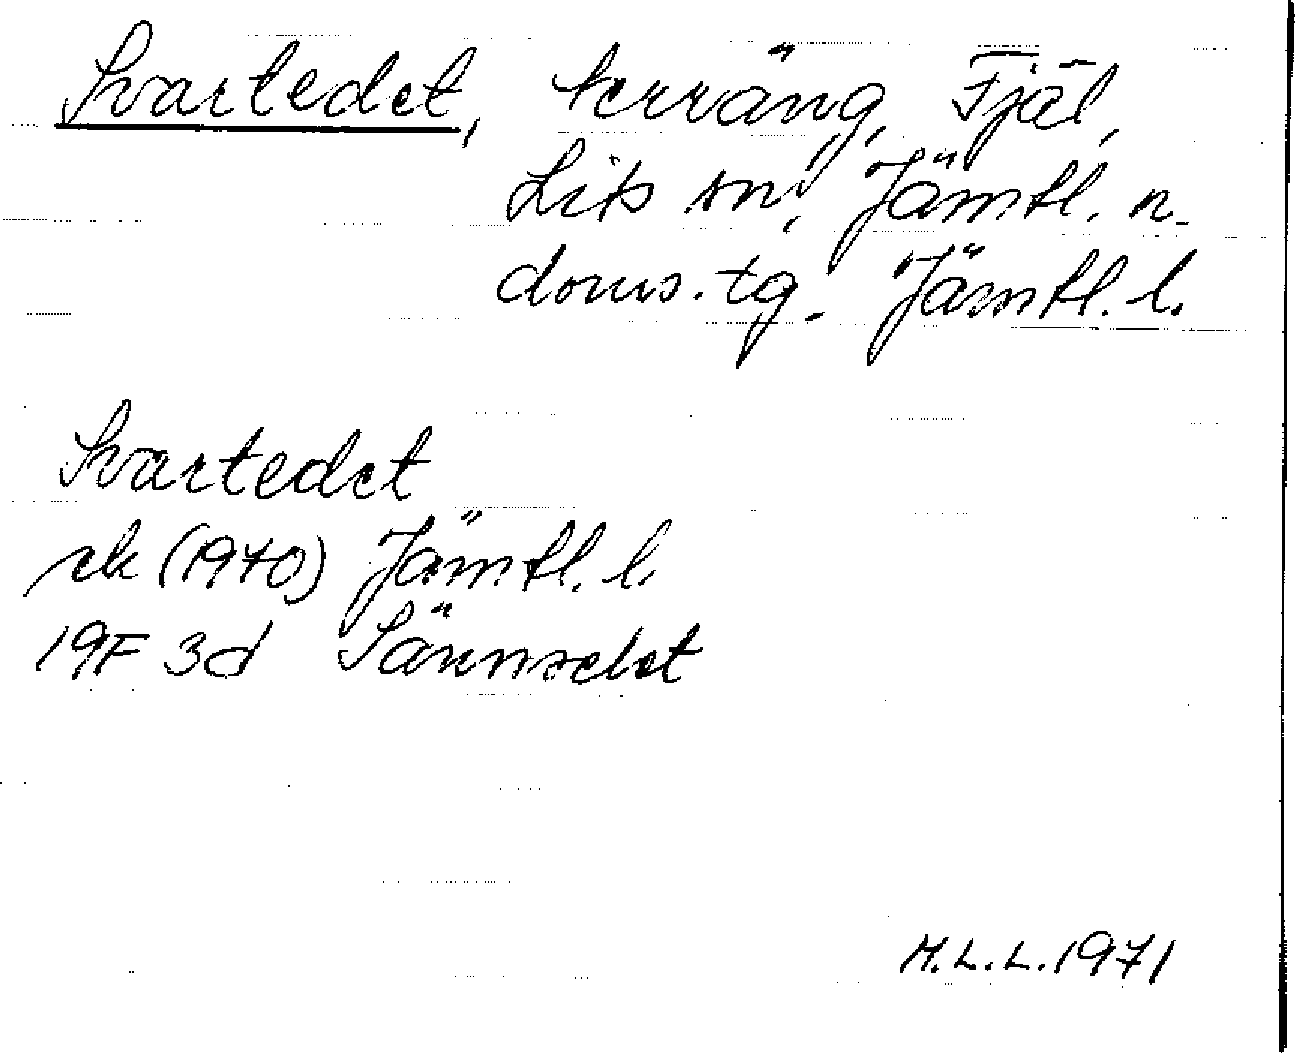 Svartedet, terräng, Fjäl,
Lits sn, Jämtl. n.
doms. tg. Jämtl. l.
Svartedet
ek (1970) Jämtl. l.
19F 3d Sännsedet
M.L.L. 1971